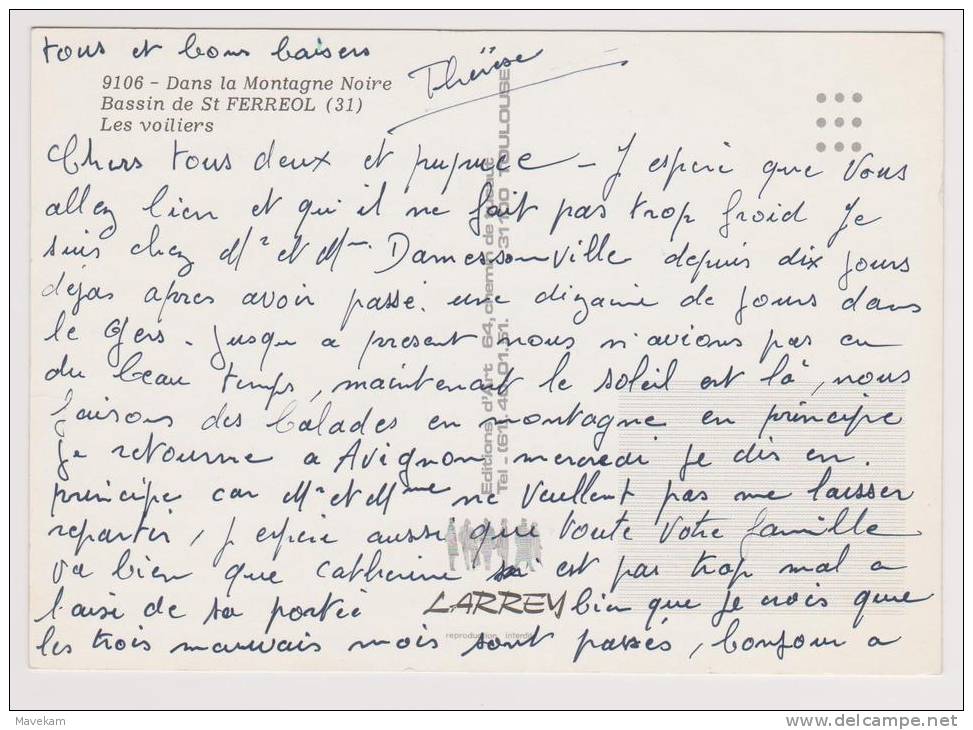 tous et bons baisers
Thérèse
9106 - Dans la Montagne Noire
Bassin de St FERREOL (31)
Les voiliers
Chers tous deux et pupuce - J espere que Vous
allez bien et qu il ne fait pas trop froid Je
suis chez Mr et Mme Damessonville depuis dix jours
dejas apres avoir passé une dizaine de jours dans
le Gers. Jusqu a present nous n'avions pas eu
du beau temps, maintenant le soleil est là, nous
faisons des balades en montagne en principe
je retourne a Avignon mercredi je dis en
principe car Mr et Mme ne veullent pas me laisser
repartir, J espere aussi que toute votre famille
va bien que Catherine est pas trop mal a
l'aise de sa portée bien que je crois que
les trois mauvais mois sont passés, bonjour a
Editions d'Art 64, chemin de
Tel - (61) 40.01.51. 31100 TOULOUSE
LARREY
reproduction interdite
Mavekam
www.delcampe.net